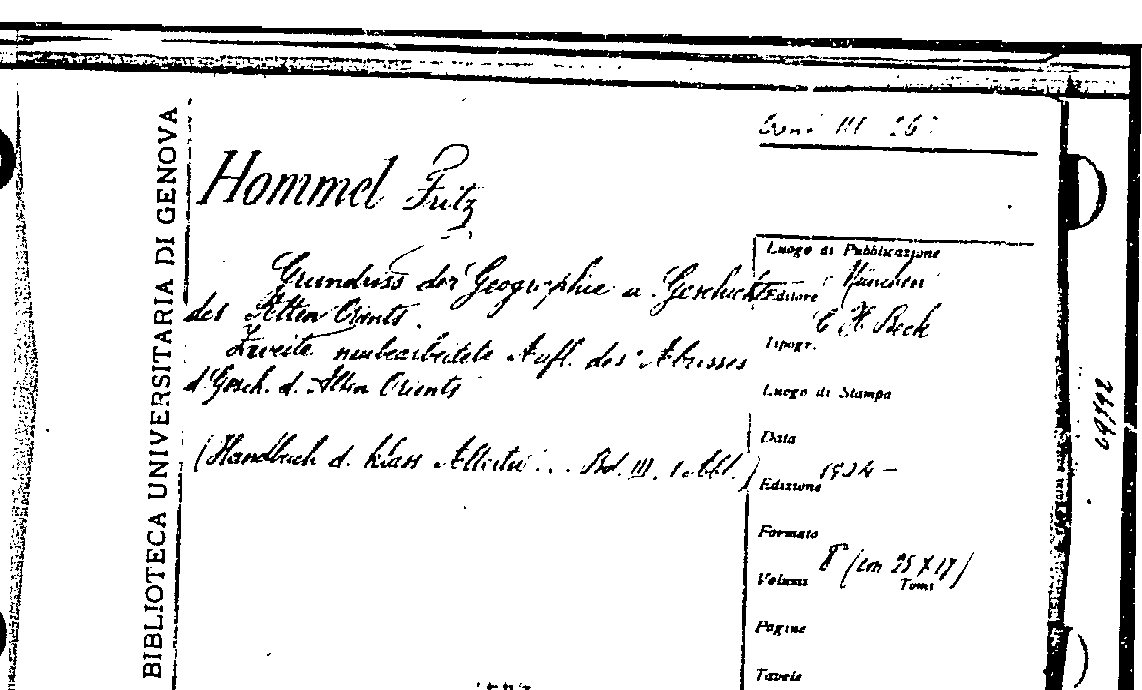 BIBLIOTECA UNIVERSITARIA DI GENOVA
Hommel Fritz
Grundriss der Geographie u. Geschichte
des Alten Orients.
Zweite neubearbeitete Aufl. des Abrisses
d. Gesch. d. Alten Orients
(Handbuch d. klass. Bd. III, 1. Abt.)
Luogo di Pubblicazione
München
Editore
C H Beck
Tipogr.
Luogo di Stampa
Data
Edizione
Formato
8° (cm 25 X 17)
Volumi Tomi
Pagine
Tavole